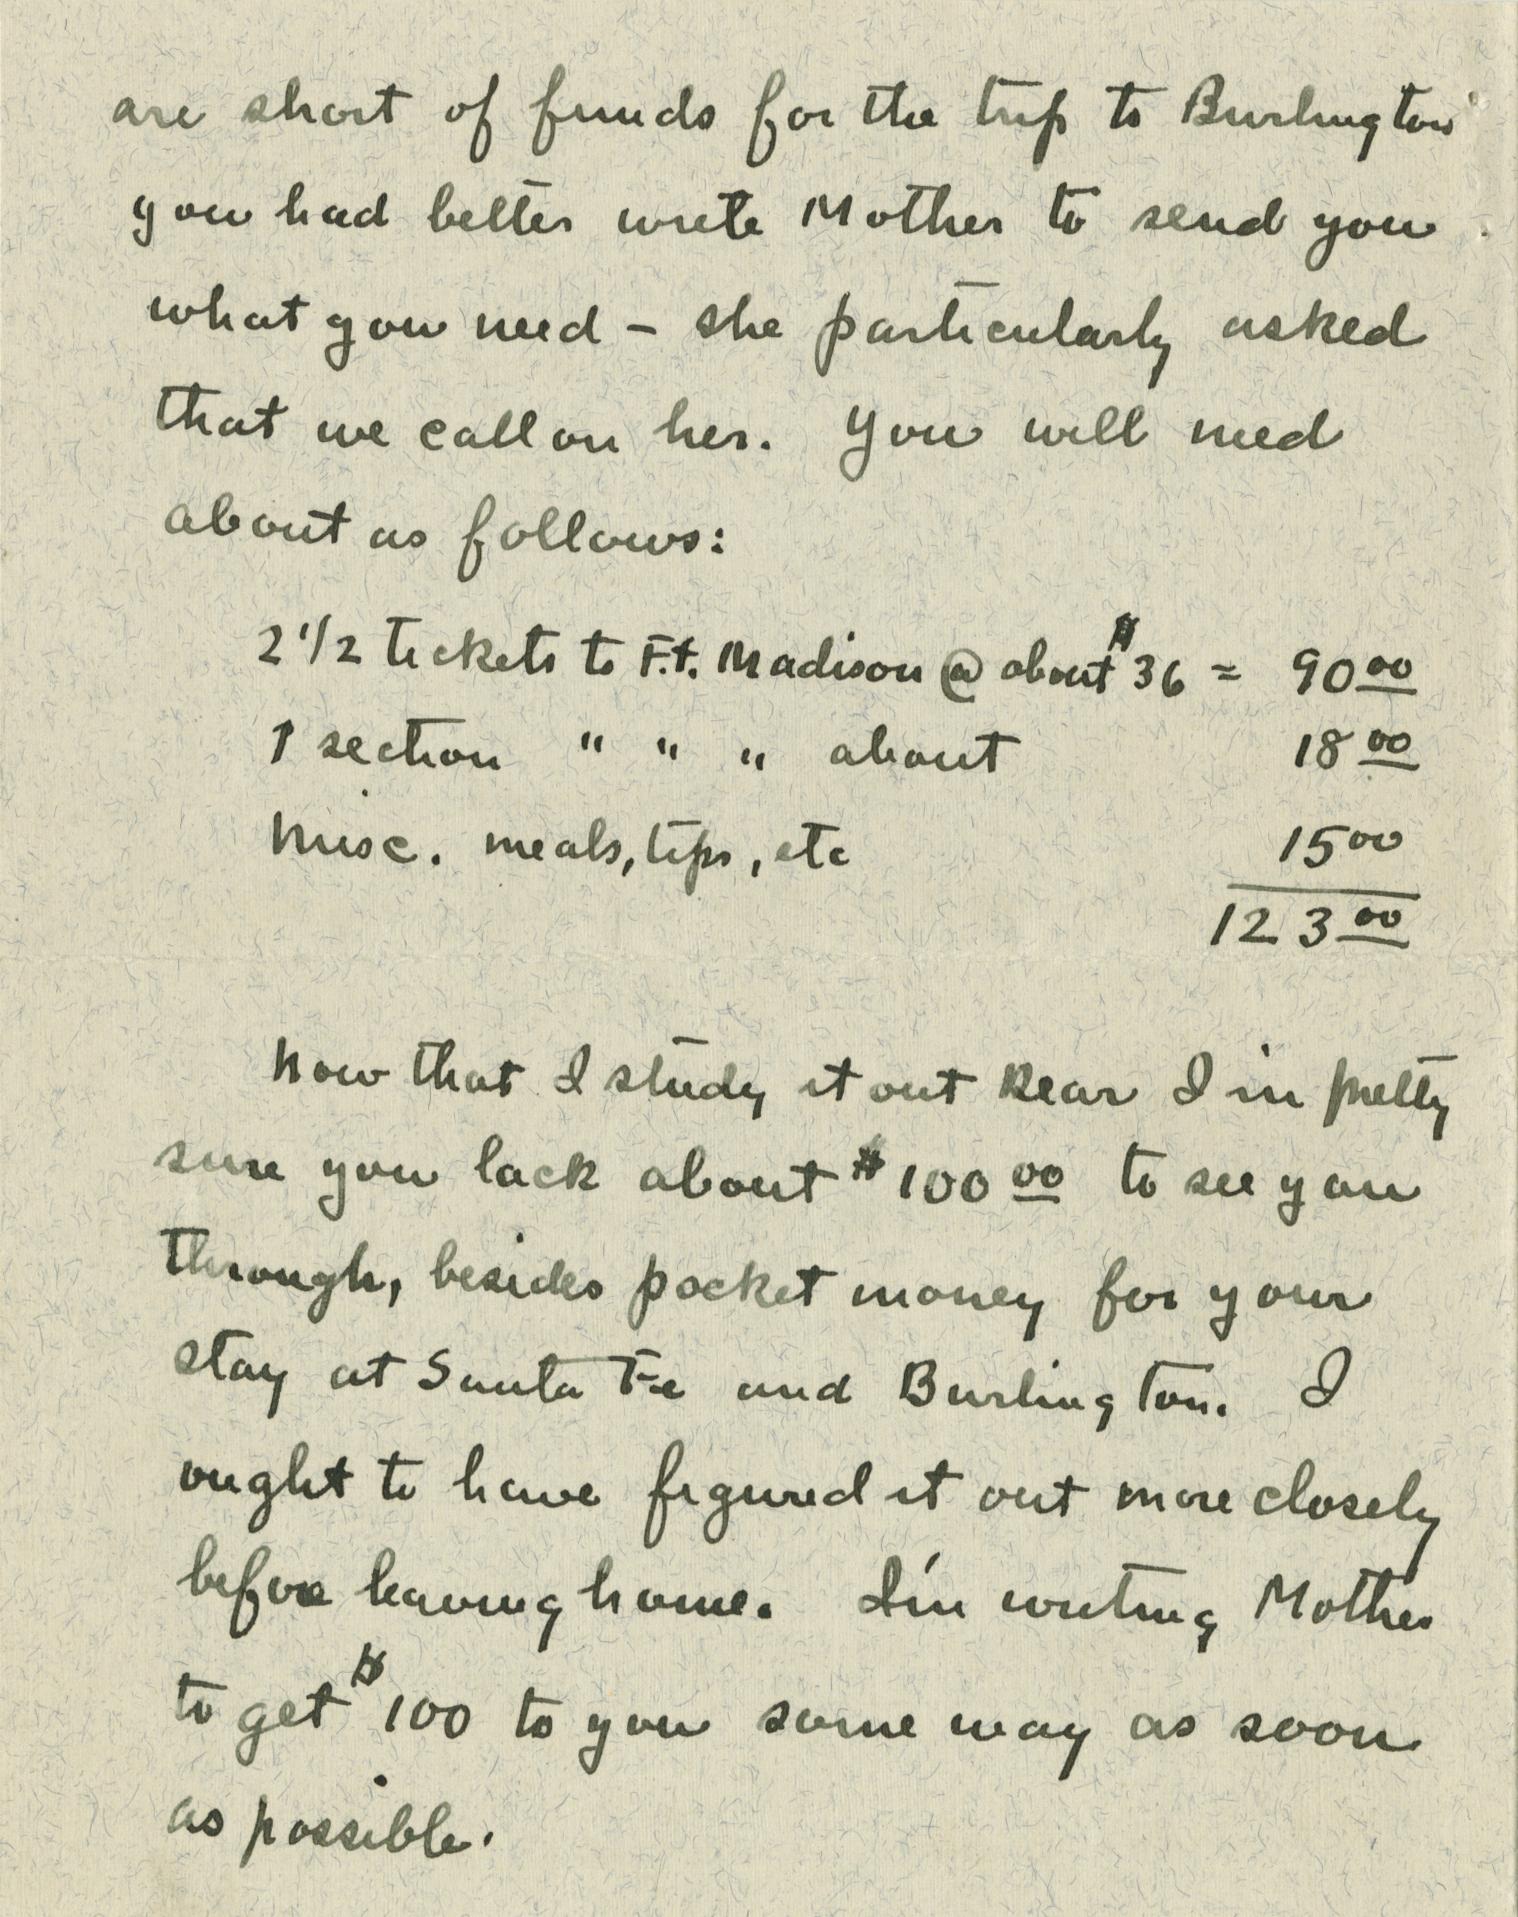 are short of funds for the trip to Burlington
you had better write Mother to send you
what you need – she particularly asked
that we call on her. You will need
about as follows:
2 1/2 tickets to Ft. Madison @ about $36 = 90 00
1 section " " " about 18 00
Misc. meals, tips, etc 15 00
123 00
Now that I study it out Dear I'm pretty
sure you lack about $100 00 to see you
through, besides pocket money for your
stay at Santa Fe and Burlington. I
ought to have figured it out more closely
before leaving home. I'm writing Mother
to get $100 to you some way as soon
as possible.